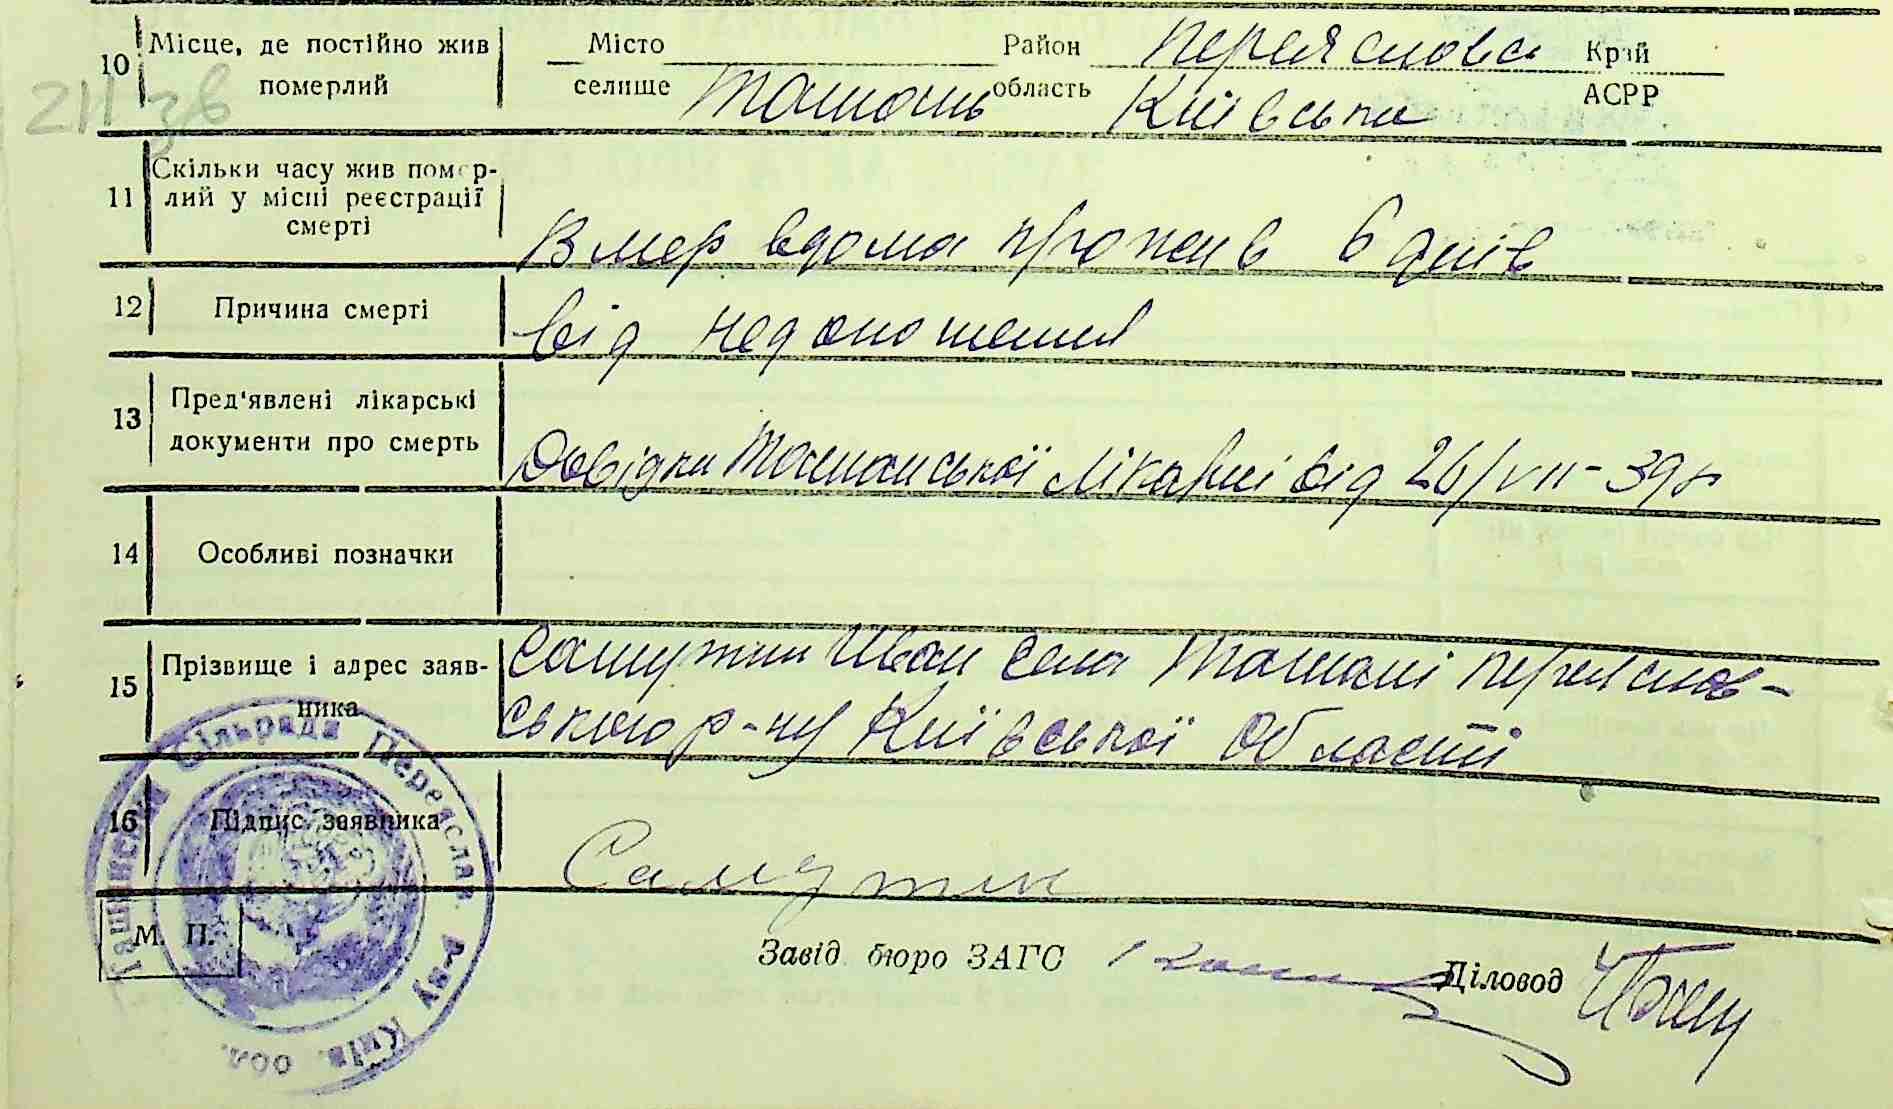 10 Місце, де постійно жив Місто Район Переяславс Край
померлий селище Ташань область Київська АСРР
211 зв
11 Скільки часу жив помер-
лий у місці реєстрації
смерті Вмер вдома прожив 6 днів
12 Причина смерті від недоношення
13 Пред'явлені лікарські
документи про смерть Довідка Ташанської лікарні від 26/VII-39р
14 Особливі позначки
15 Прізвище і адрес заяв- Самутин Иван села Ташані Переяслов-
ника ського р-ну Київської Області
16 Підпис заявника Самутин
М. П. Завід бюро ЗАГС Діловод
Ташанська Сільрада Переяслав. р-ну Київ. обл.